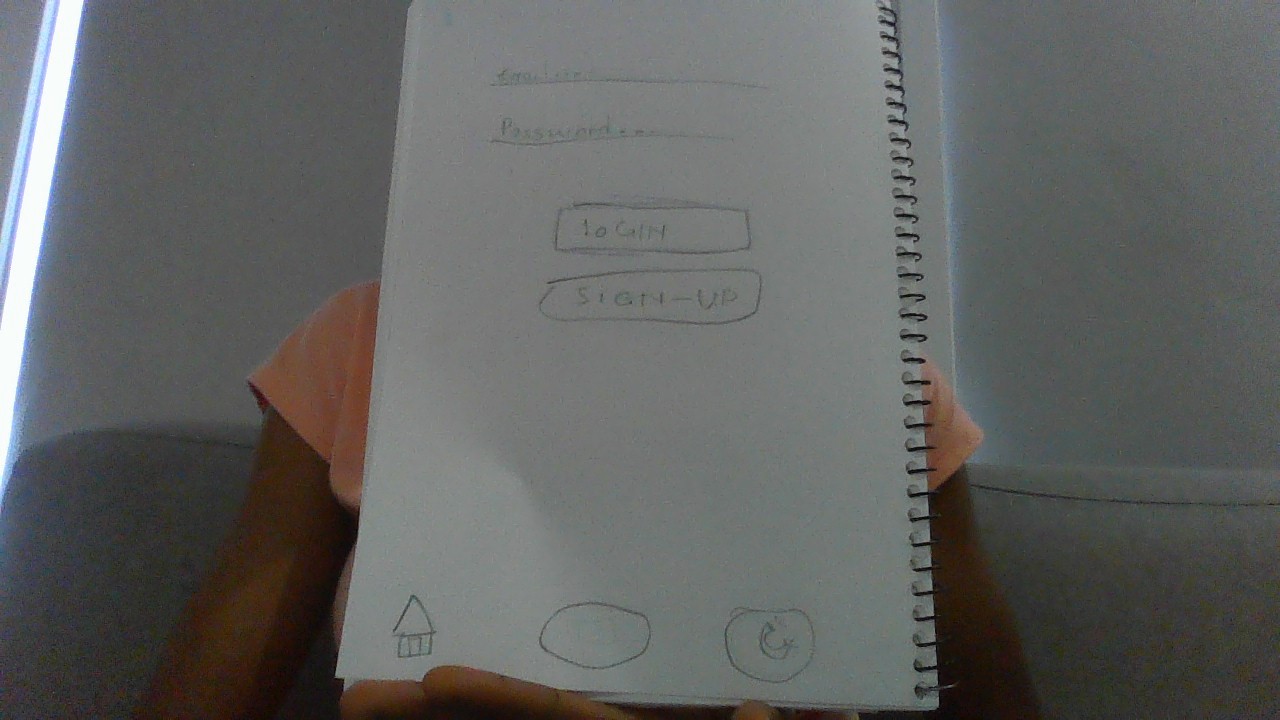 Email...
Password....
loGIN
SIGN-UP